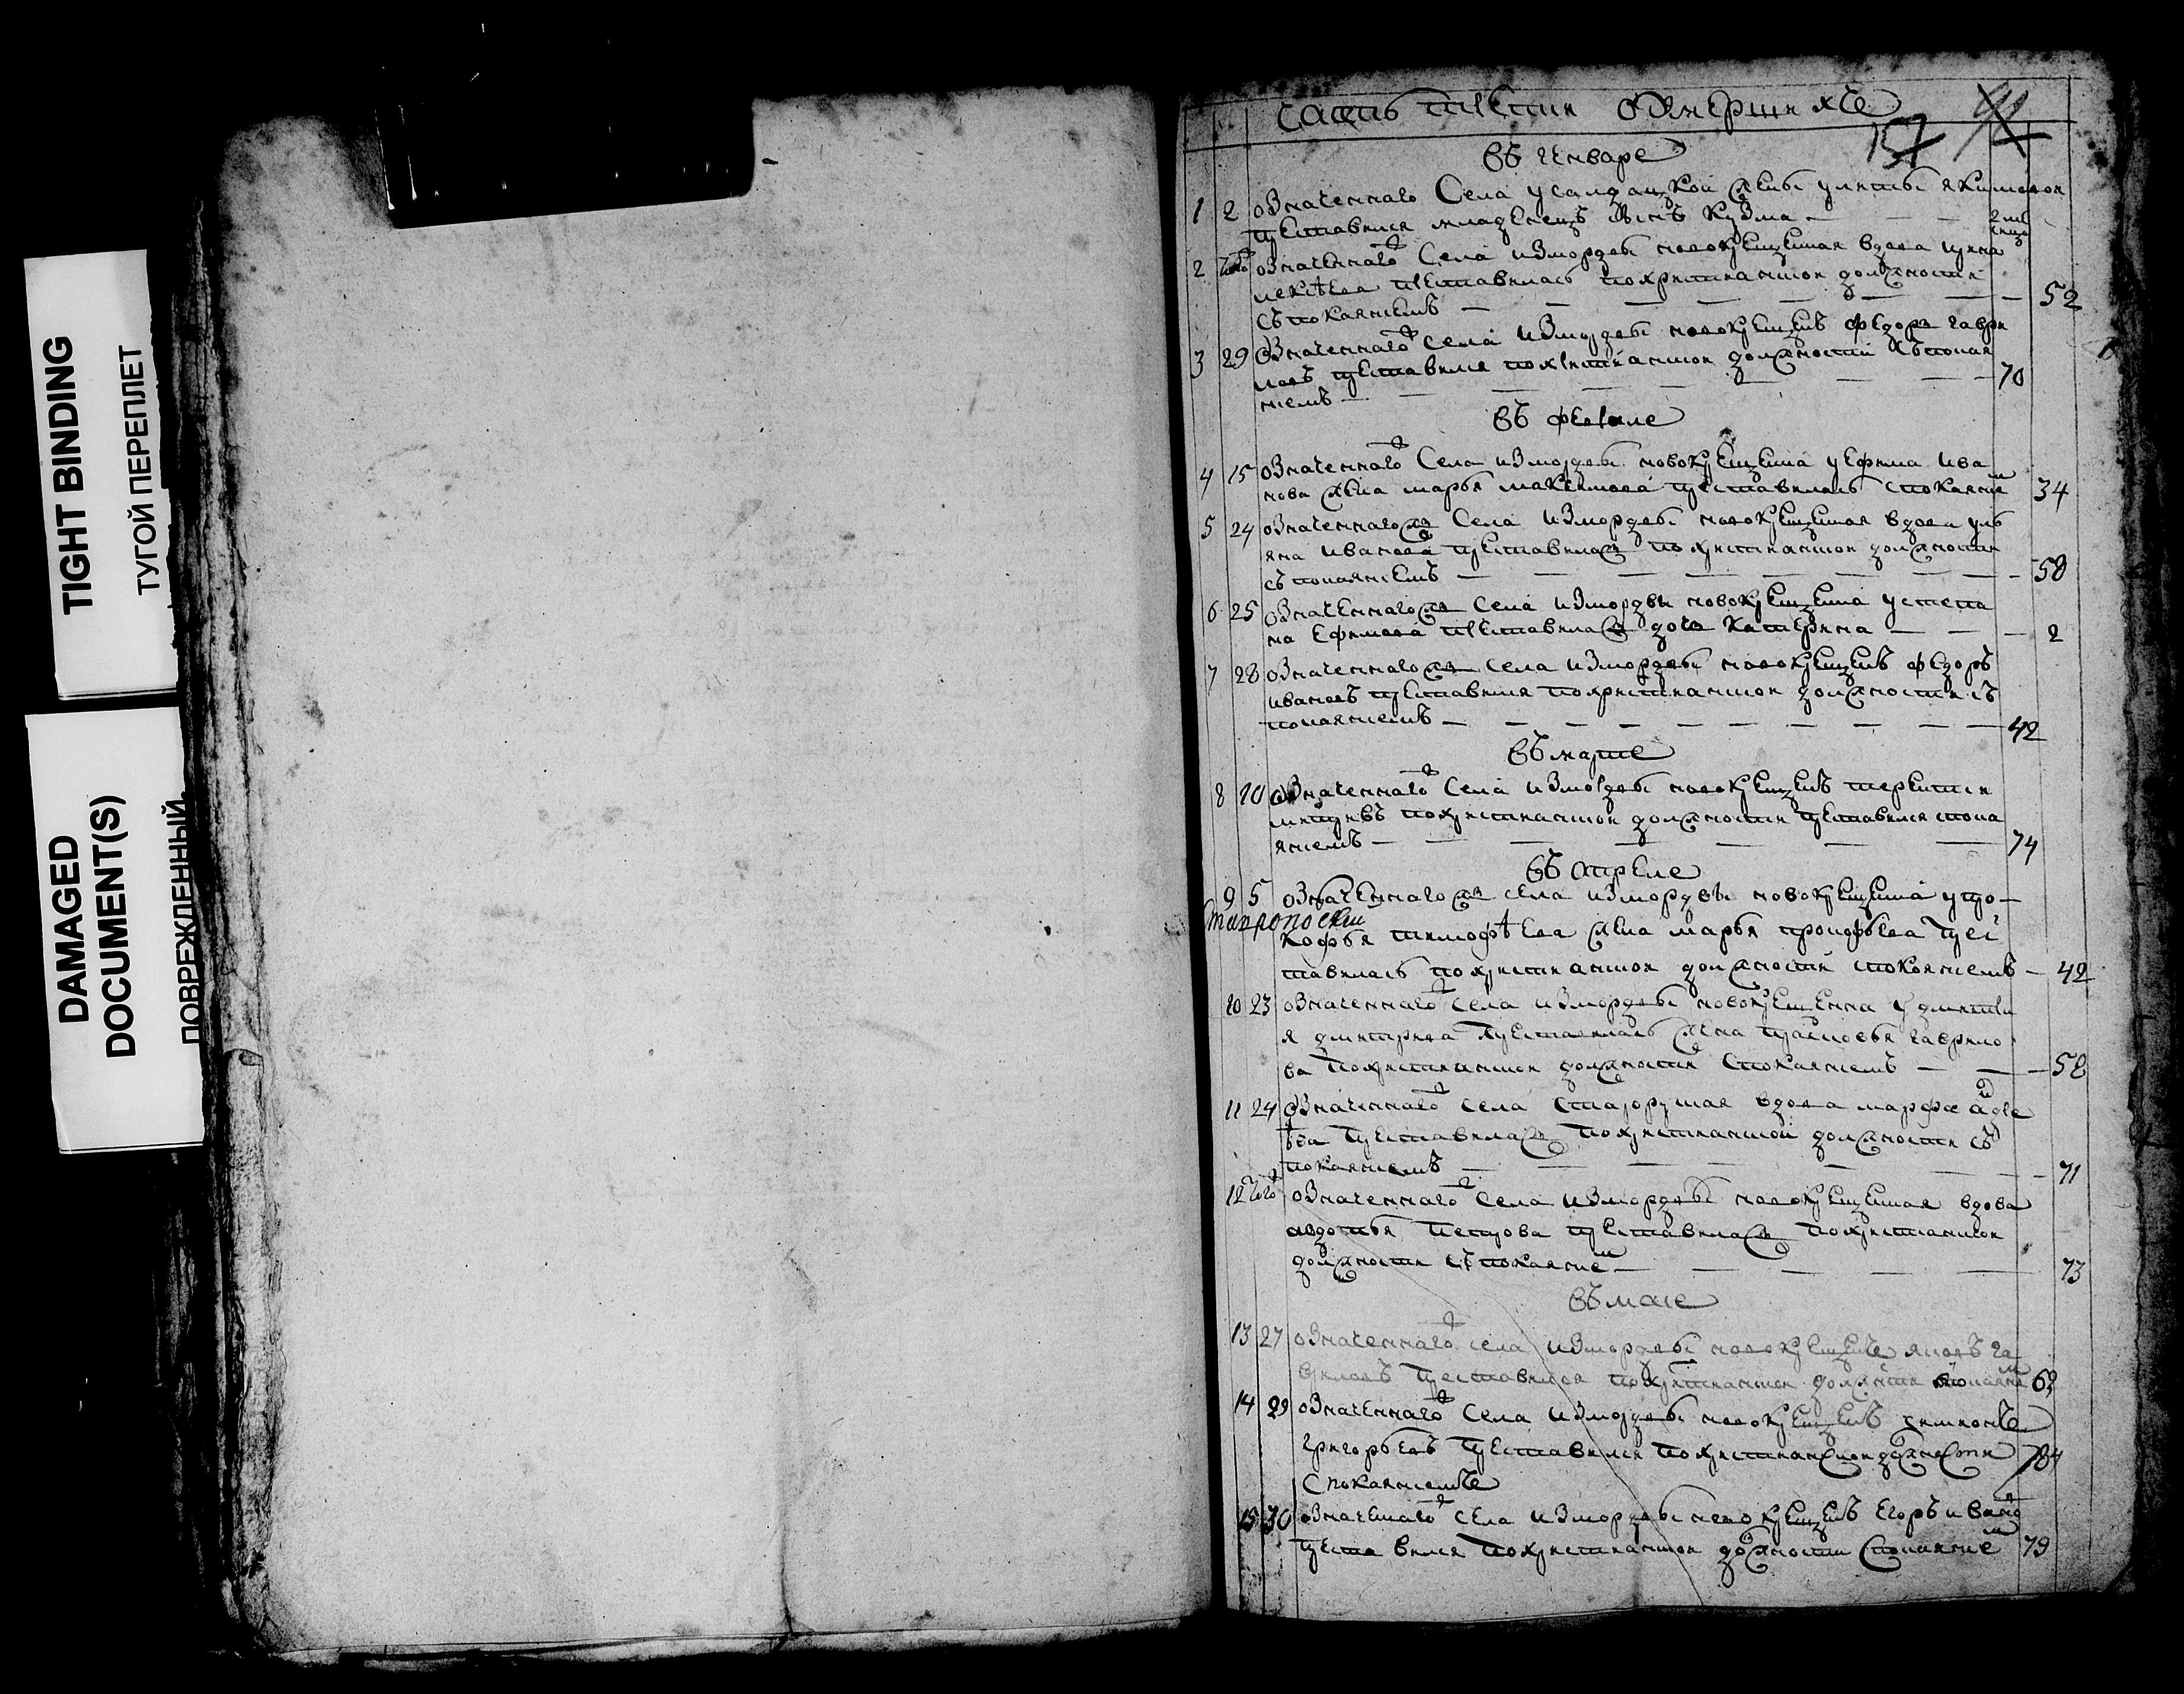 TIGHT BINDING
ТУГОЙ ПЕРЕПЛЕТ
DAMAGED
DOCUMENT(S)
ПОВРЕЖДЕННЫЙ
часть третия о умершихъ
157
въ генваре
1 2 означеннаго села у салдацкой жены улиты якимовой
преставился младенецъ сынъ кузма
2 означеннаго села измордвы новокрещеная вдова
преставилась похристианской должности
съ покаянiемъ 52
3 29 означеннаго села измордвы новокрещенъ федоръ гаври
ловъ преставился похристианской должности съ покая
нiемъ 70
въ феврале
4 15 означеннаго села измордвы новокрещена у ефима ива
нова жена марья максимова преставилась спокаянiе 34
5 24 означенного села измордвы новокрещеная вдова уль
яна иванова преставилась похристианской должности
съ покаянiемъ 58
6 25 означенного села измордвы новокрещена у степа
на ефимова преставилась дочь катерина 2
7 28 означенного села измордвы новокрещенъ федоръ
ивановъ преставился похристианской должности съ
покаянiемъ 42
въ марте
8 10 означеннаго села измордвы новокрещенъ терентей
похристианской должности преставился спока
янiемъ 74
въ апреле
9 5 означенного села измордвы новокрещена у про
кофья тимофѣева жена марья прокофьева прес
тавилась похристианской должности спокаянiемъ 42
10 23 означеннаго села измордвы новокрещенна у дмитрi
я дмитриева преставилась жена прасковья гаврило
ва похристианской должности спокаянiемъ 58
11 24 означеннаго села вдова марфа
ѣва преставилась похристианской должности съ
покаянiемъ 71
12 означеннаго села измордвы новокрещеная вдова
авдотья петрова преставилась похристианской
должности съ покаянiе 73
въ маiе
13 27 означеннаго села измордвы новокрещенъ яковъ га
вриловъ преставился похристианской должности спокаянiе 62
14 29 означеннаго села измордвы новокрещенъ
григорьевъ преставился похристианской должности 84
спокаянiемъ
15 30 означенаго села измордвы новокрещенъ егоръ ивано
преставился похристианской должности спокаянiе 79